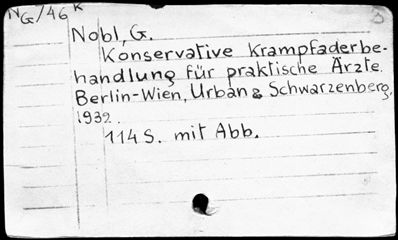 NG/46 K
Nobl, G.
Konservative Krampfaderbe-
handlung für praktische Ärzte.
Berlin-Wien, Urban & Schwarzenberg,
1932.
114 S. mit Abb.